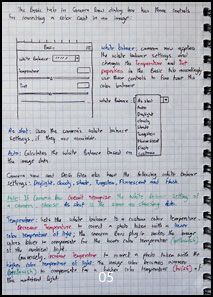 The Basic tab in Camera Raw dialog box has three controls
for correcting a color cast in an image:
Basic
White Balance:
Temperature
Tint
White Balance: camera raw applies
the white balance settings and
changes the Temperature and Tint
properties in the Basic tab accordingly
use these controls to fine tune the
color balance
White Balance: As shot
As shot
Auto
Daylight
Cloudy
Shade
Tungsten
Fluorescent
Flash
Custom
As shot: Uses the camera's white balance
settings, if they are available.
Auto: Calculates the white balance based on
the image data
Camera raw and DNG files also have the following white balance
settings: Daylight, Cloudy, Shade, Tungsten, Fluorescent and Flash
Note: If Camera Raw doesn't recognise the white balance setting of
a camera, choosing As shot is the same as choosing Auto.
Temperature: Sets the white balance to a custom color temperature.
Decrease Temperature to correct a photo taken with a lower
color temperature of light; the Camera Raw plug-in makes the image
colors bluer to compensate for the lower color temperature (yellowish)
of the ambient light.
Conversely, increase temperature to correct a photo taken with the
higher color temperature of light; the image colors become warmer
(yellowish) to compensate for a higher color temperature (bluish) of
the ambient light
05